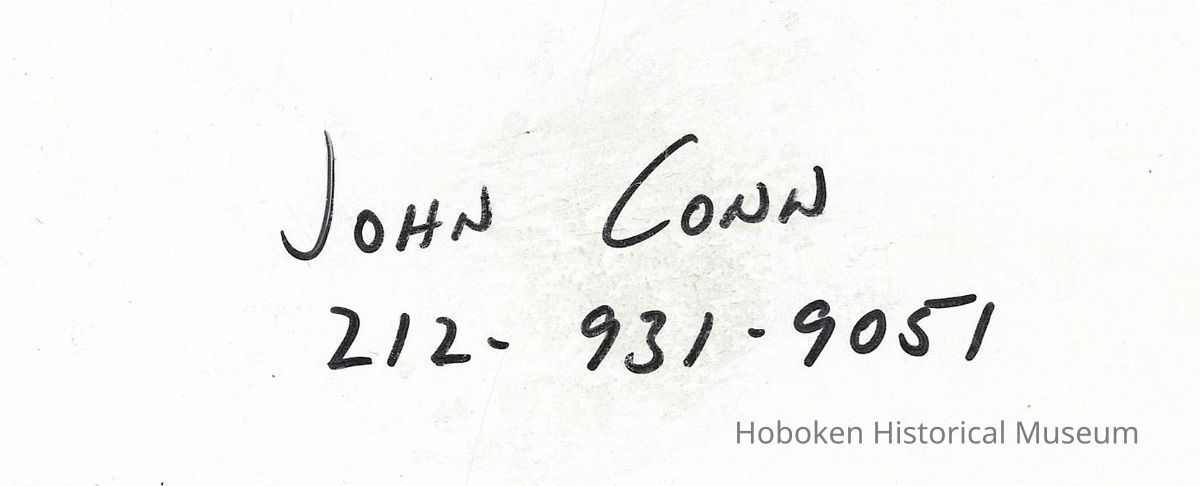 John Conn
212- 931-9051
Hoboken Historical Museum